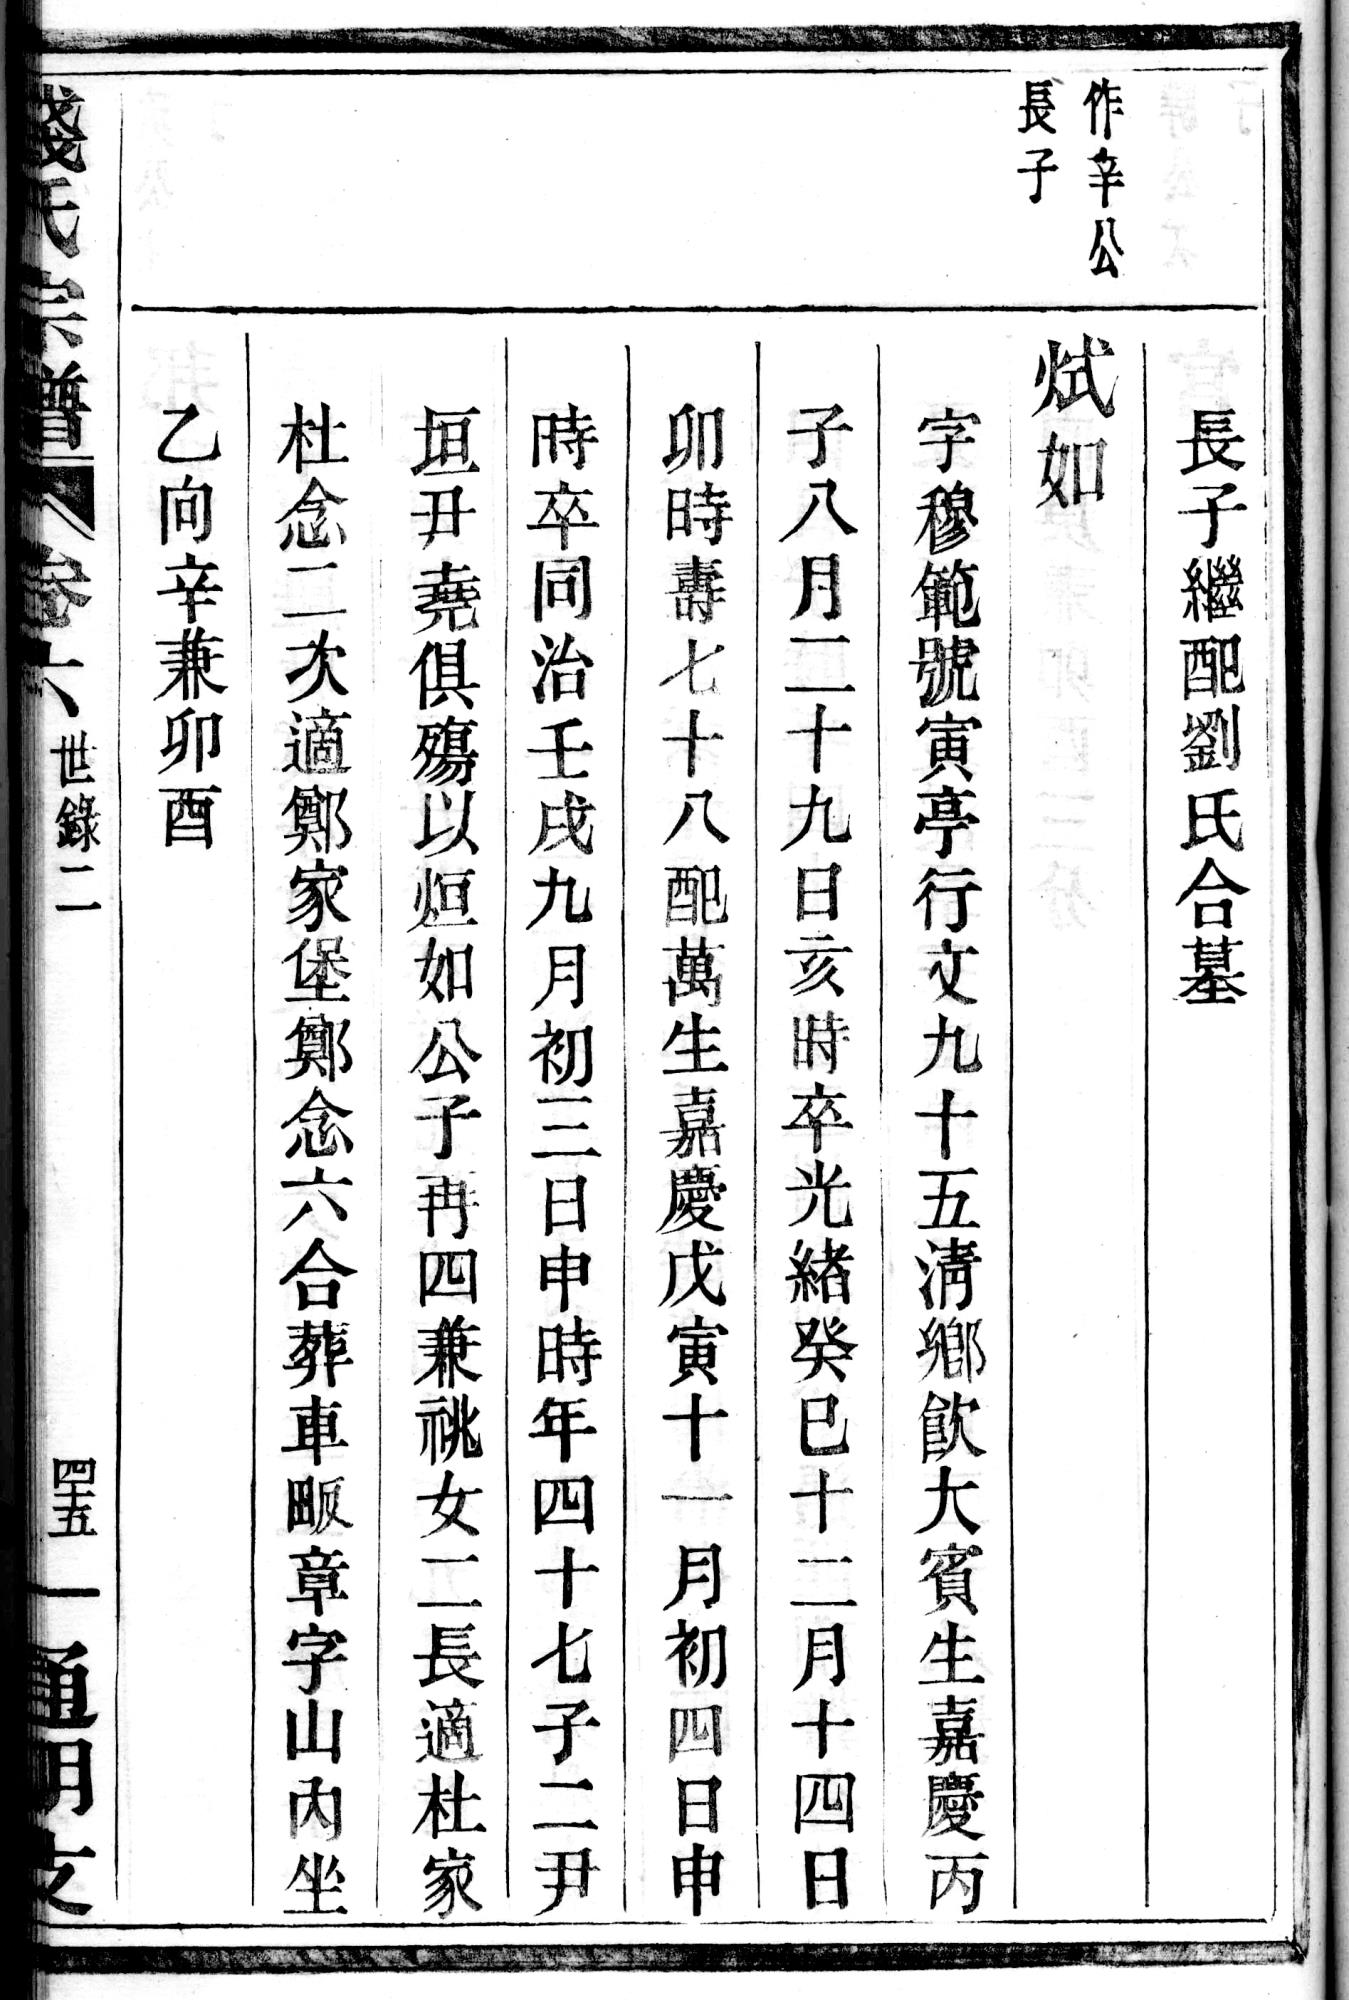 長子繼配劉氏合墓
作辛公
長子
烒如
字穆範號寅亭行文九十五淸鄉飮大賓生嘉慶丙
子八月二十九日亥時卒光緖癸巳十二月十四日
卯時壽七十八配萬生嘉慶戊寅十一月初四日申
時卒同治壬戌九月初三日申時年四十七子二尹
垣丑堯俱殤以烜如公子再四兼祧女二長適杜家
杜念二次適鄭家堡鄭念六合葬車畈章字山內坐
乙向辛兼卯酉
錢氏宗譜
卷六 世錄二
四十五
通明支